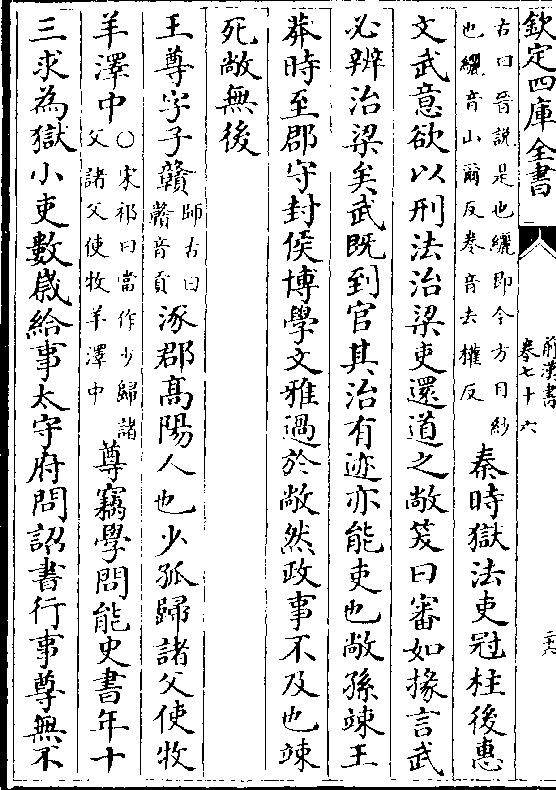 欽定四庫全書
前漢書
卷七十六
二十六
古曰晉説是也纚即今方目紗
也纚音山爾反卷音去權反
秦時獄法吏冠柱後惠
文武意欲以刑法治梁吏還道之敞笑曰審如掾言武
必辨治梁矣武既到官其治有迹亦能吏也敞孫竦王
莽時至郡守封侯博學文雅過於敞然政事不及也竦
死敞無後
王尊字子贛
師古曰
贛音貢
涿郡高陽人也少孤歸諸父使牧
羊澤中
○宋祁曰當作少歸諸
父諸父使牧羊澤中
尊竊學問能史書年十
三求為獄小吏數歲給事太守府問詔書行事尊無不